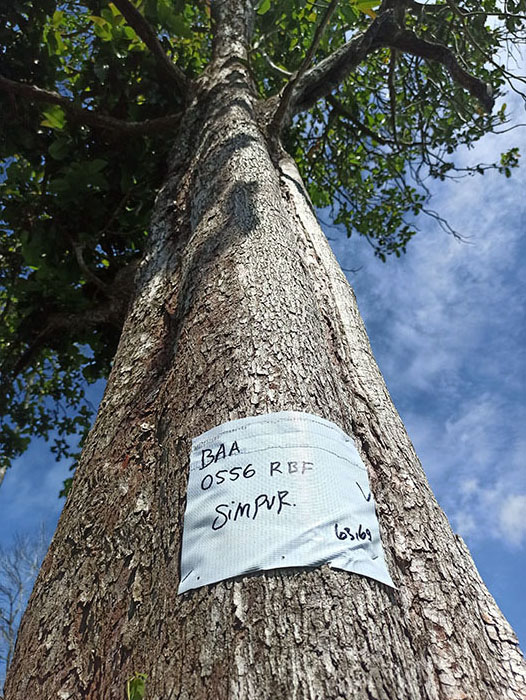 BAA
0556 RBF
SimPUR.
63,69